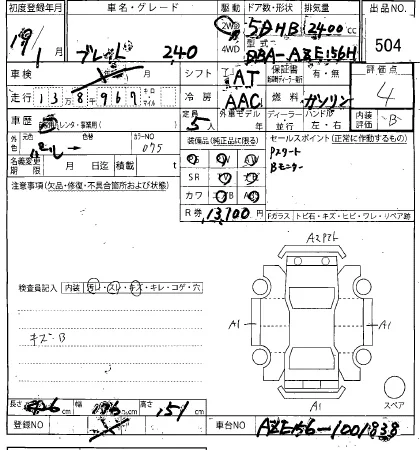 初度登録年月 車名・グレード 駆動 ドア数・形状 排気量 出品NO
19/1 ブレイド 240 2WD 4WD 5D HB 2400cc 504
型式 DBA-AZE156H
車検 年 月 シフト AT 保証書 有・無 評価点
走行 138967 冷房 AAC 燃料 ガソリン 4
車歴 レンタ・事業用( ) 定員 5人 外車モデル 年 ディーラー 並行 ハンドル 左・右 内装評価 B
外色 元色 パール 色替 カラーNO 075 装備品(純正品に限る) セールスポイント(正常に作動するもの)
PS SR カワ AW Pスタート
Bモニター
名義変更期限 月 日迄 積載 t
R券 13,700円 Fガラス トビ石・キズ・ヒビ・ワレ・リペア跡
注意事項(欠品・修復・不具合箇所および状態)
A2 P2 L
検査員記入 内装 汚レ・スレ・キズ・キレ・コゲ・穴
A1 A1
キズB
スペア
A1
長さ cm 幅 176cm 高さ 151cm
登録NO 車台NO AZE156-1001838